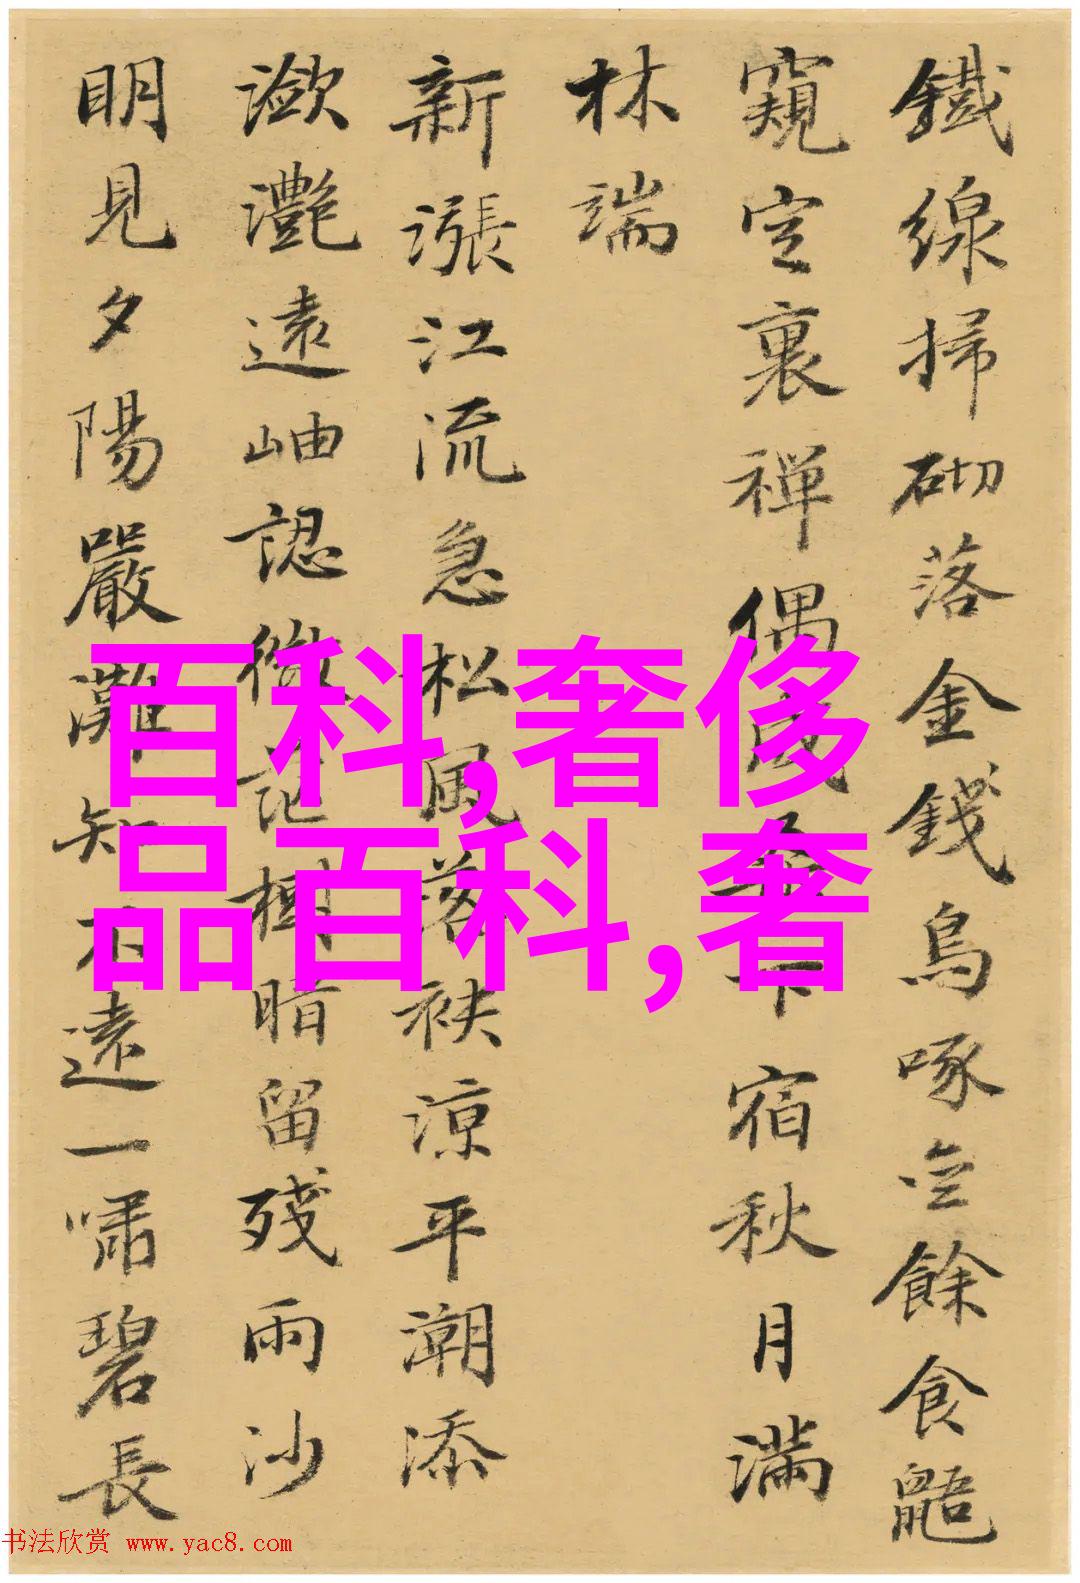 鐵線掃砌落金錢烏啄無餘食鼯
窺定裏禪偶
宿秋月滿
林端
新漲江流急松風落袂涼平潮添
瀲灔遠岫認微記樹暗留殘雨沙
明見夕陽嚴灘知不遠一嘯碧長
百科,奢侈
品百科,奢
书法欣赏 www.yac8.com